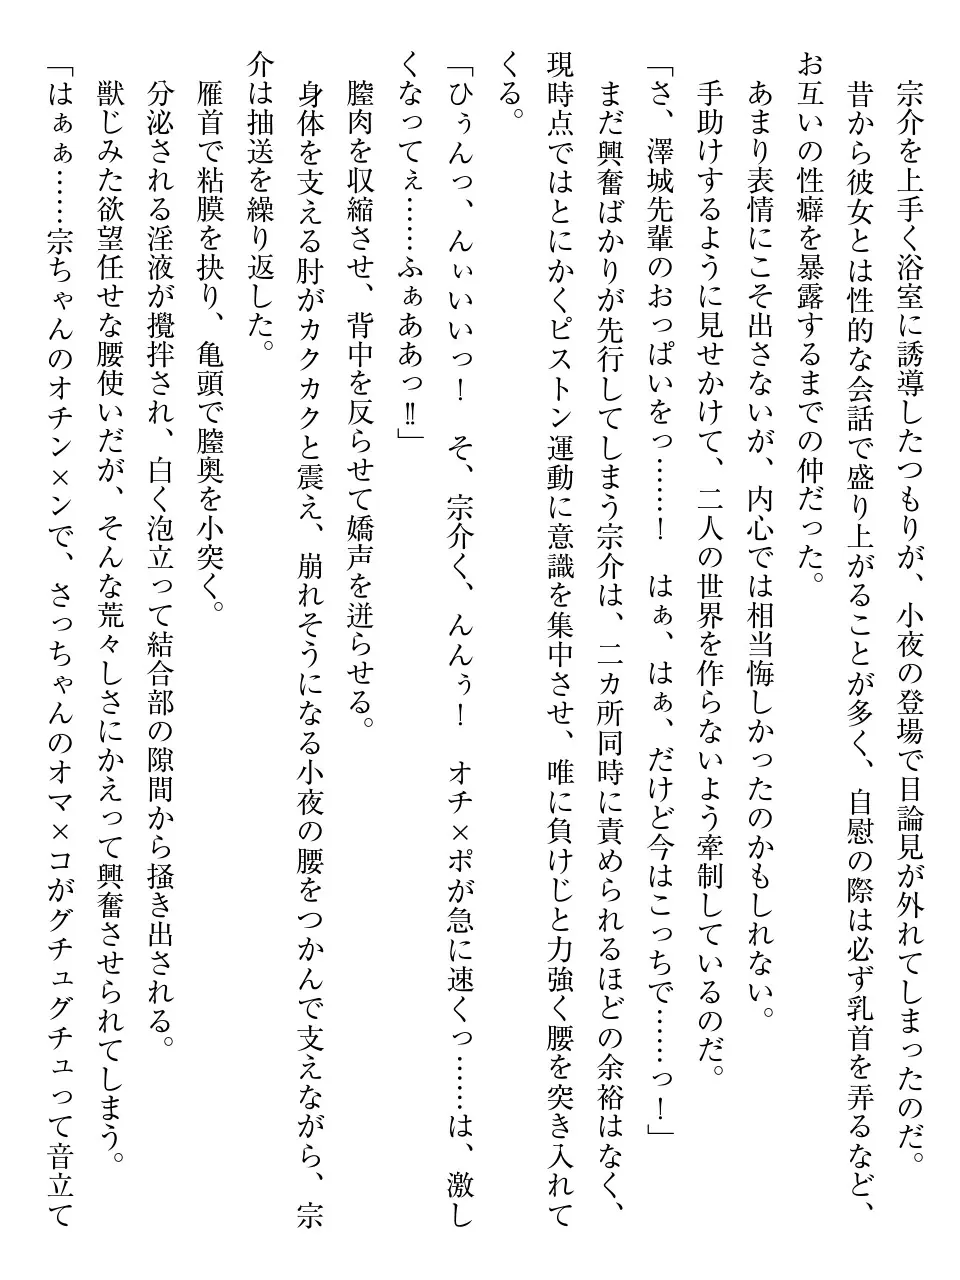 宗介を上手く浴室に誘導したつもりが、小夜の登場で目論見が外れてしまったのだ。
昔から彼女とは性的な会話で盛り上がることが多く、自慰の際は必ず乳首を弄るなど、
お互いの性癖を暴露するまでの仲だった。
あまり表情にこそ出さないが、内心では相当悔しかったのかもしれない。
手助けするように見せかけて、二人の世界を作らないよう牽制しているのだ。
「さ、澤城先輩のおっぱいをっ……！　はぁ、はぁ、だけど今はこっちで……っ！」
まだ興奮ばかりが先行してしまう宗介は、二カ所同時に責められるほどの余裕はなく、
現時点ではとにかくピストン運動に意識を集中させ、唯に負けじと力強く腰を突き入れて
くる。
「ひぅんっ、んぃいいっ！　そ、宗介く、んんぅ！　オチ×ポが急に速くっ……は、激し
くなってぇ……ふぁああっ‼」
膣肉を収縮させ、背中を反らせて嬌声を迸らせる。
身体を支える肘がカクカクと震え、崩れそうになる小夜の腰をつかんで支えながら、宗
介は抽送を繰り返した。
雁首で粘膜を抉り、亀頭で膣奥を小突く。
分泌される淫液が攪拌され、白く泡立って結合部の隙間から掻き出される。
獣じみた欲望任せな腰使いだが、そんな荒々しさにかえって興奮させられてしまう。
「はぁぁ……宗ちゃんのオチン×ンで、さっちゃんのオマ×コがグチュグチュって音立て